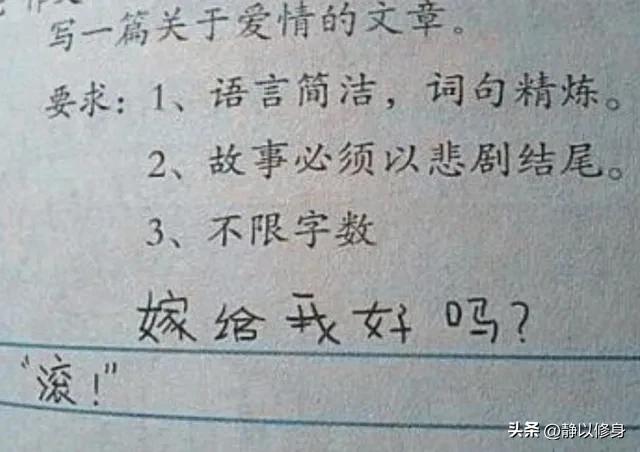 写一篇关于爱情的文章。
要求：1、语言简洁，词句精炼。
2、故事必须以悲剧结尾。
3、不限字数
嫁给我好吗？
“滚！”
头条 @静以修身